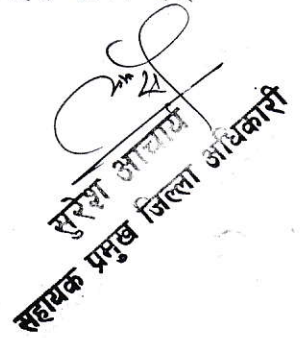 सुरेश आचार्य
सहायक प्रमुख जिल्ला अधिकारी